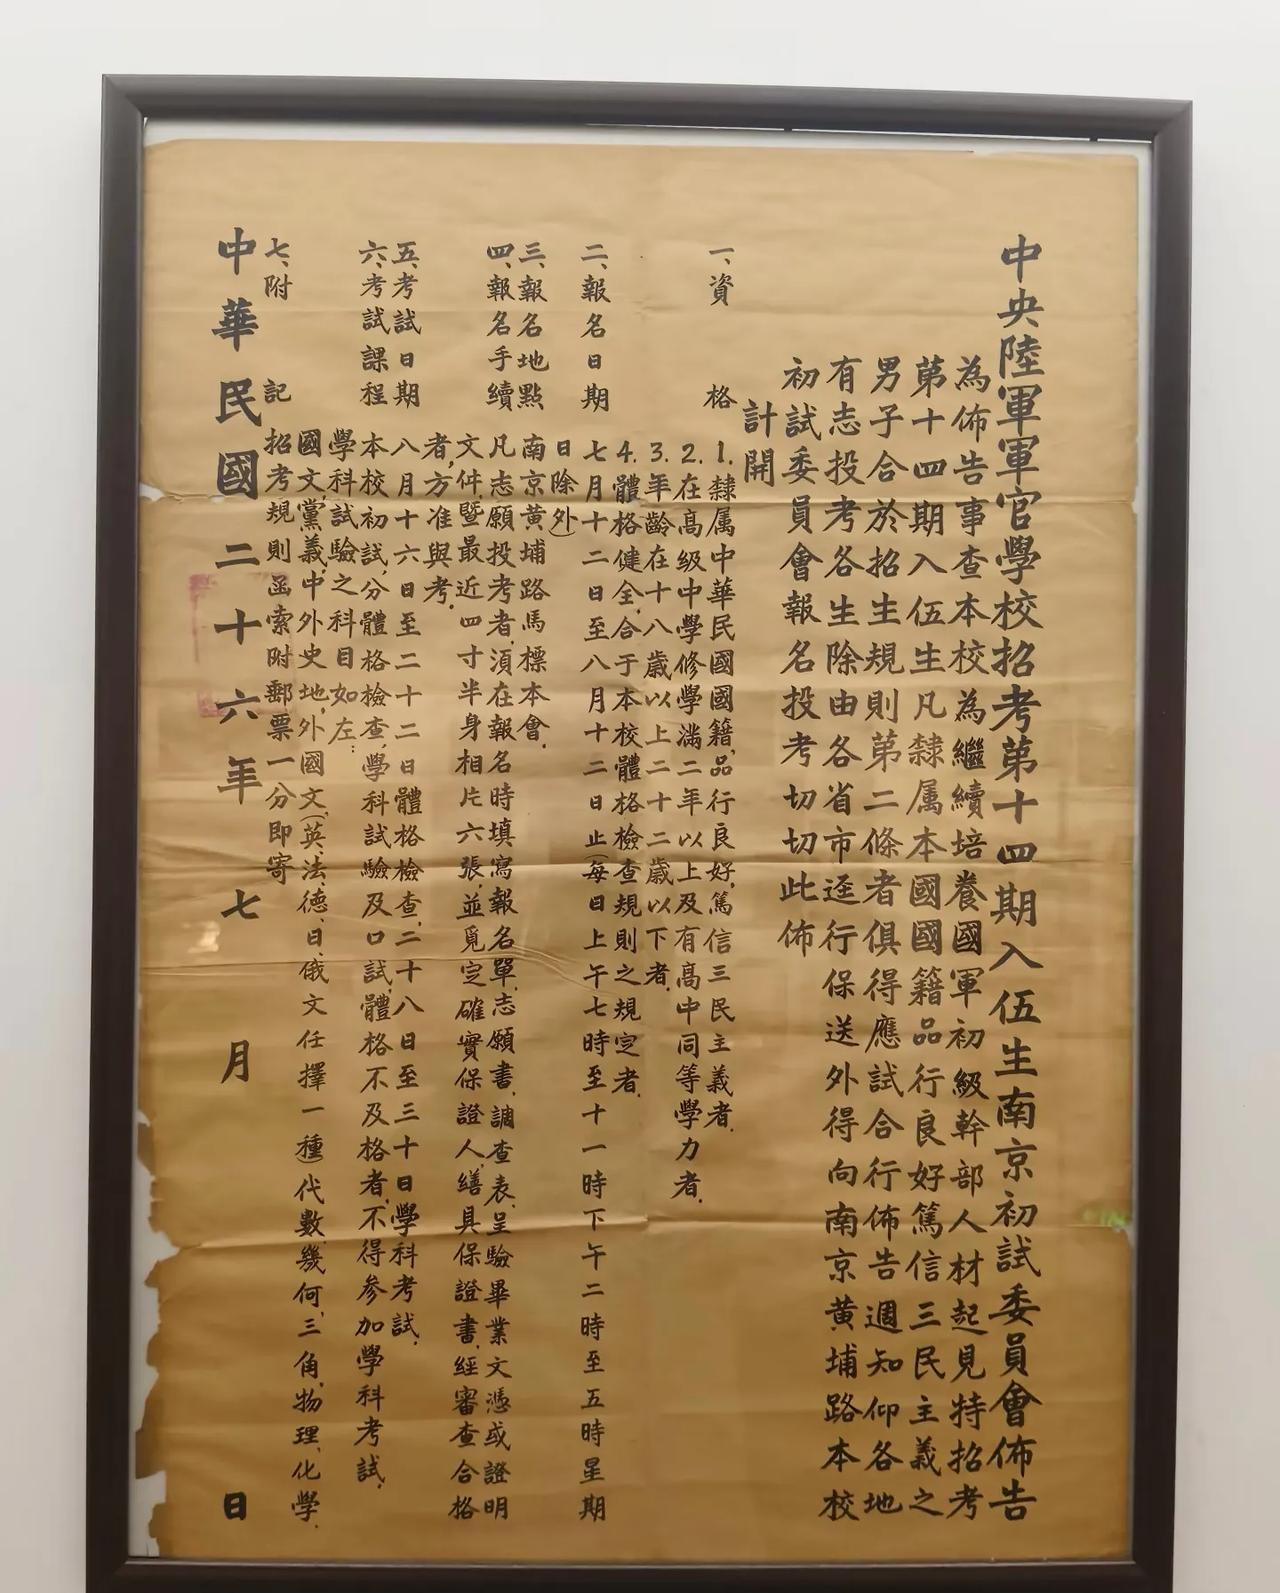 中央陸軍軍官學校招考第十四期入伍生南京初試委員會佈告
為佈告事查本校為繼續培養國軍初級幹部人材起見特招考
第十四期入伍生凡隸属本國國籍品行良好篤信三民主義之
男子合於招生規則第二條者俱得應試合行佈告週知仰各地
有志投考各生除由各省市逕行保送外得向南京黃埔路本校
初試委員會報名投考切切此佈
計開
一、資格
1.隸属中華民國國籍,品行良好,篤信三民主義者.
2.在高級中學修學滿二年以上及有高中同等學力者.
3.年齡在十八歲以上二十二歲以下者.
4.體格健全,合于本校體格檢查規則之規定者.
二、報名日期 七月十二日至八月十二日止(每日上午七時至十一時下午二時至五時星期
日除外)
三、報名地點 南京黃埔路馬標本會.
四、報名手續 凡志願投考者,須在報名時填寫報名單,志願書,調查表,呈驗畢業文憑或證明
文件,暨最近四寸半身相片六張,並覓定確實保證人,繕具保證書,經審查合格
者,方准與考.
五、考試日期 八月十六日至二十二日體格檢查,二十八日至三十日學科考試.
六、考試課程 本校初試,分體格檢查,學科試驗及口試,體格不及格者,不得参加學科考試.
學科試驗之科目如左:
國文,黨義,中外史地,外國文(英、法、德、日、俄文任擇一種)代數,幾何,三角,物理,化學.
七、附記 招考規則函索附郵票一分即寄
中華民國二十六年七月 日